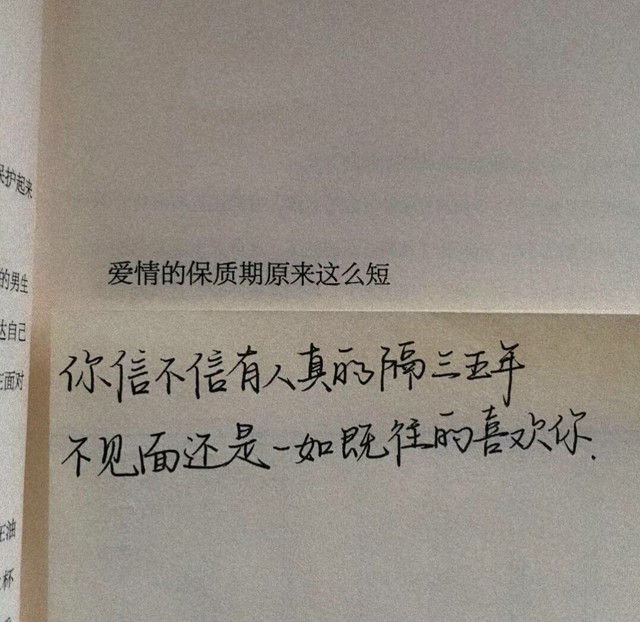 保护起来
的男生
达自己
在面对
在油
杯
爱情的保质期原来这么短
你信不信有人真的隔三五年
不见面还是一如既往的喜欢你.